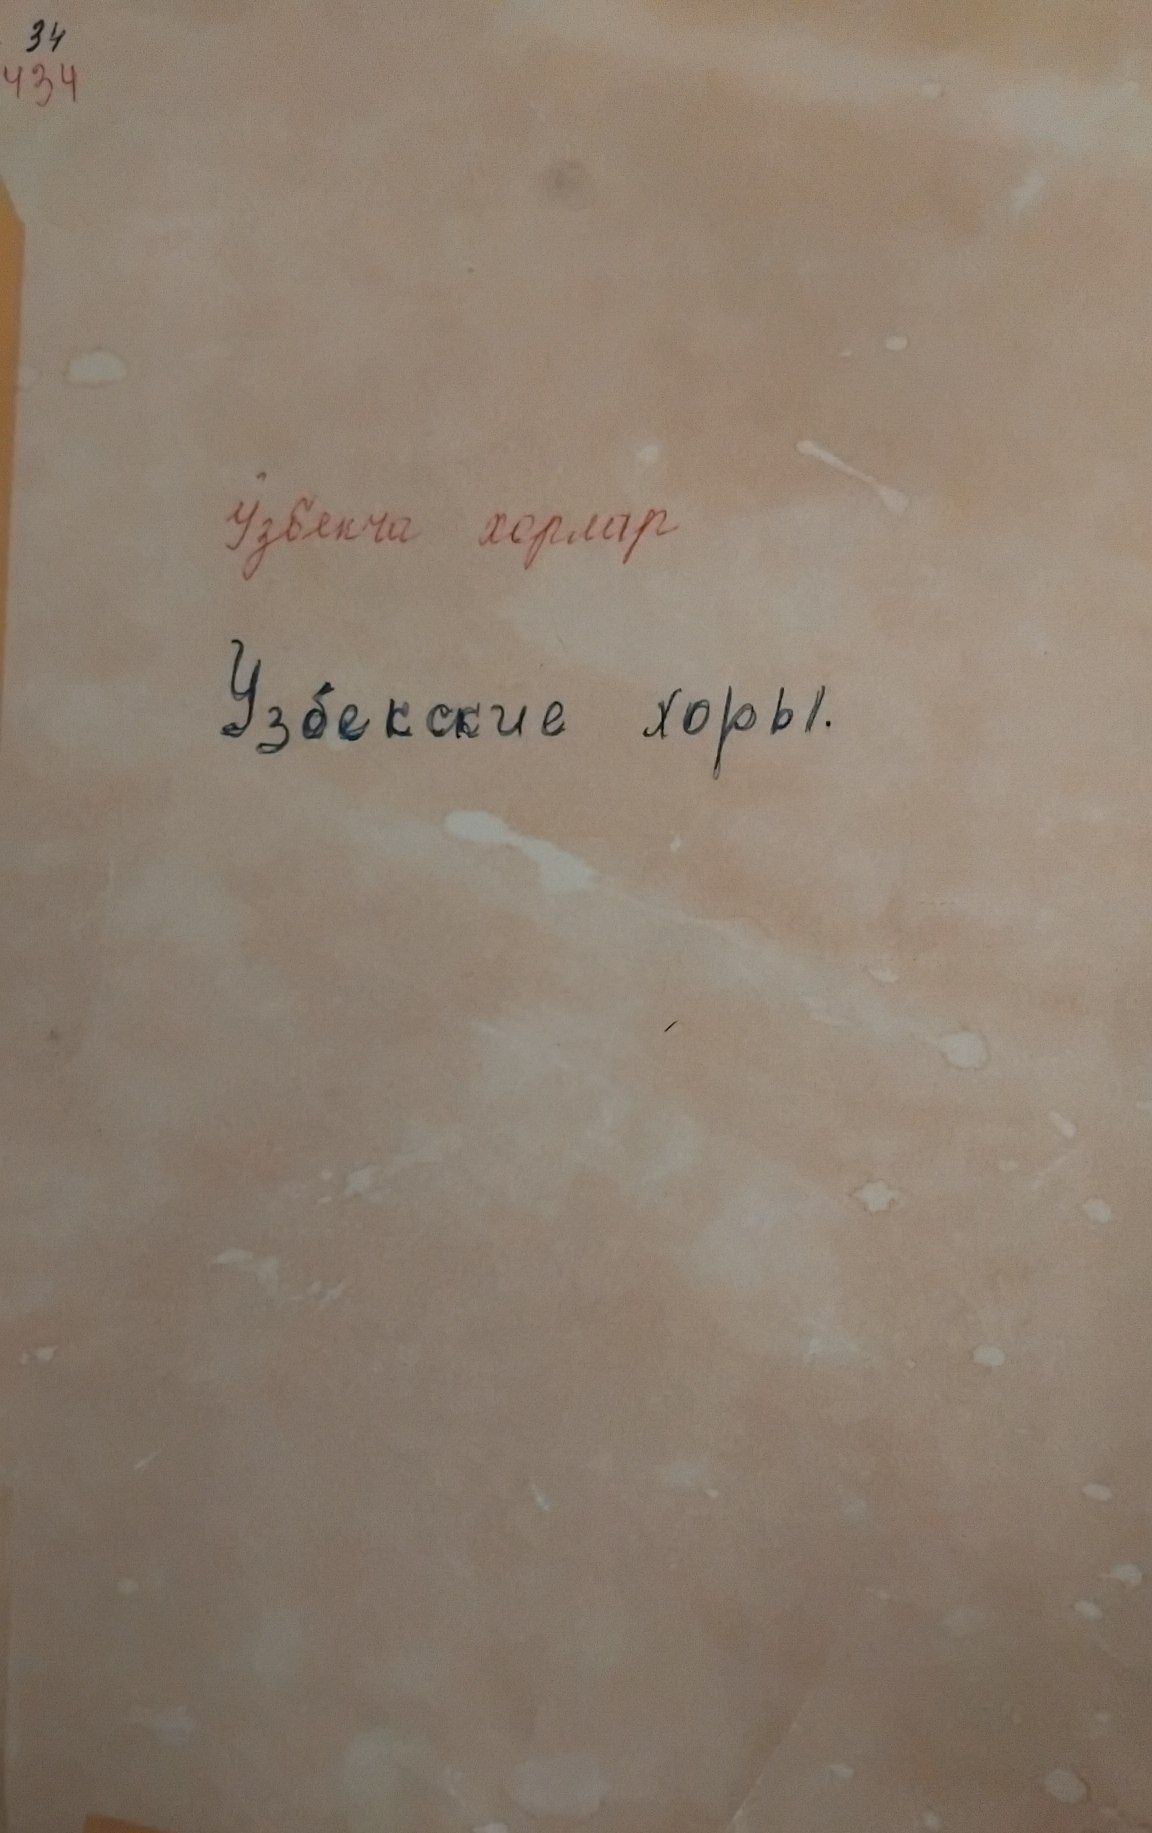 34
434
Ўзбекча хорлар
Узбекские хоры.